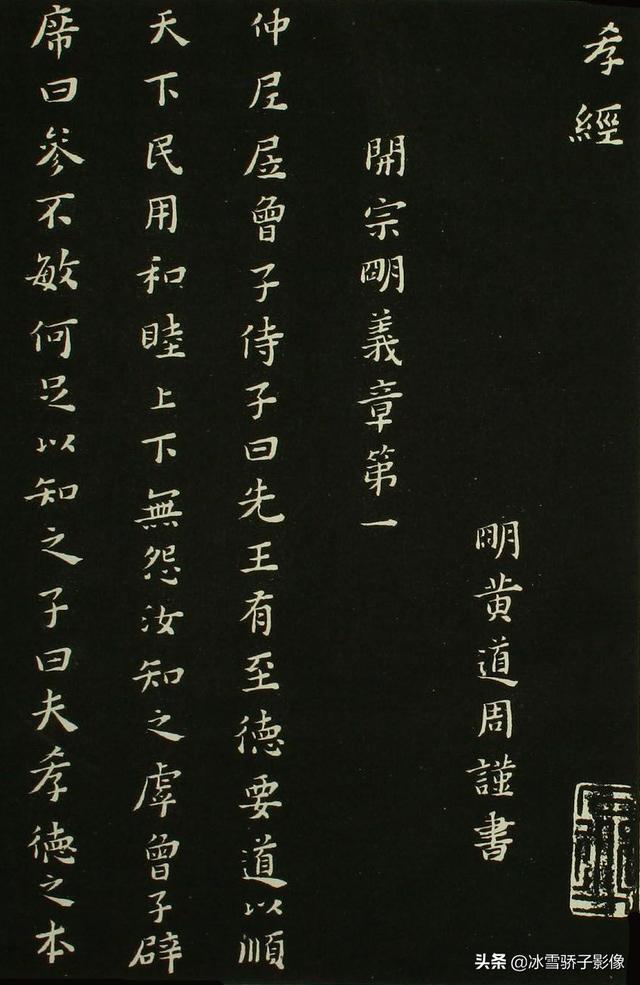 孝經
明黄道周謹書
開宗明義章第一
仲尼凥曾子侍子曰先王有至德要道以順
天下民用和睦上下無怨汝知之虖曾子辟
席曰參不敏何足以知之子曰夫孝德之本
头条 @冰雪骄子影像